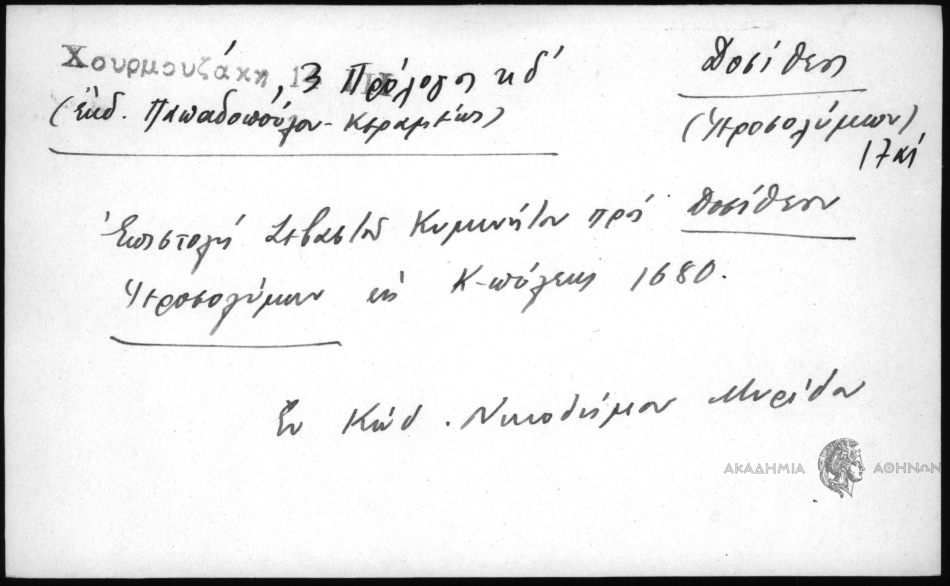 Χουρμουζάκη, 13 Πρόλογος κδ´
(ἔκδ. Παπαδοπούλου-Κεραμέως)
Δοσίθεος
(Ἱεροσολύμων)
17 κδ´
Ἐπιστολὴ Σεβαστοῦ Κυμινήτου πρὸς Δοσίθεον
Ἱεροσολύμων ἐκ Κ-πόλεως 1680.
Ἐν Κώδ. Νικοδήμου
ΑΚΑΔΗΜΙΑ ΑΘΗΝΩΝ